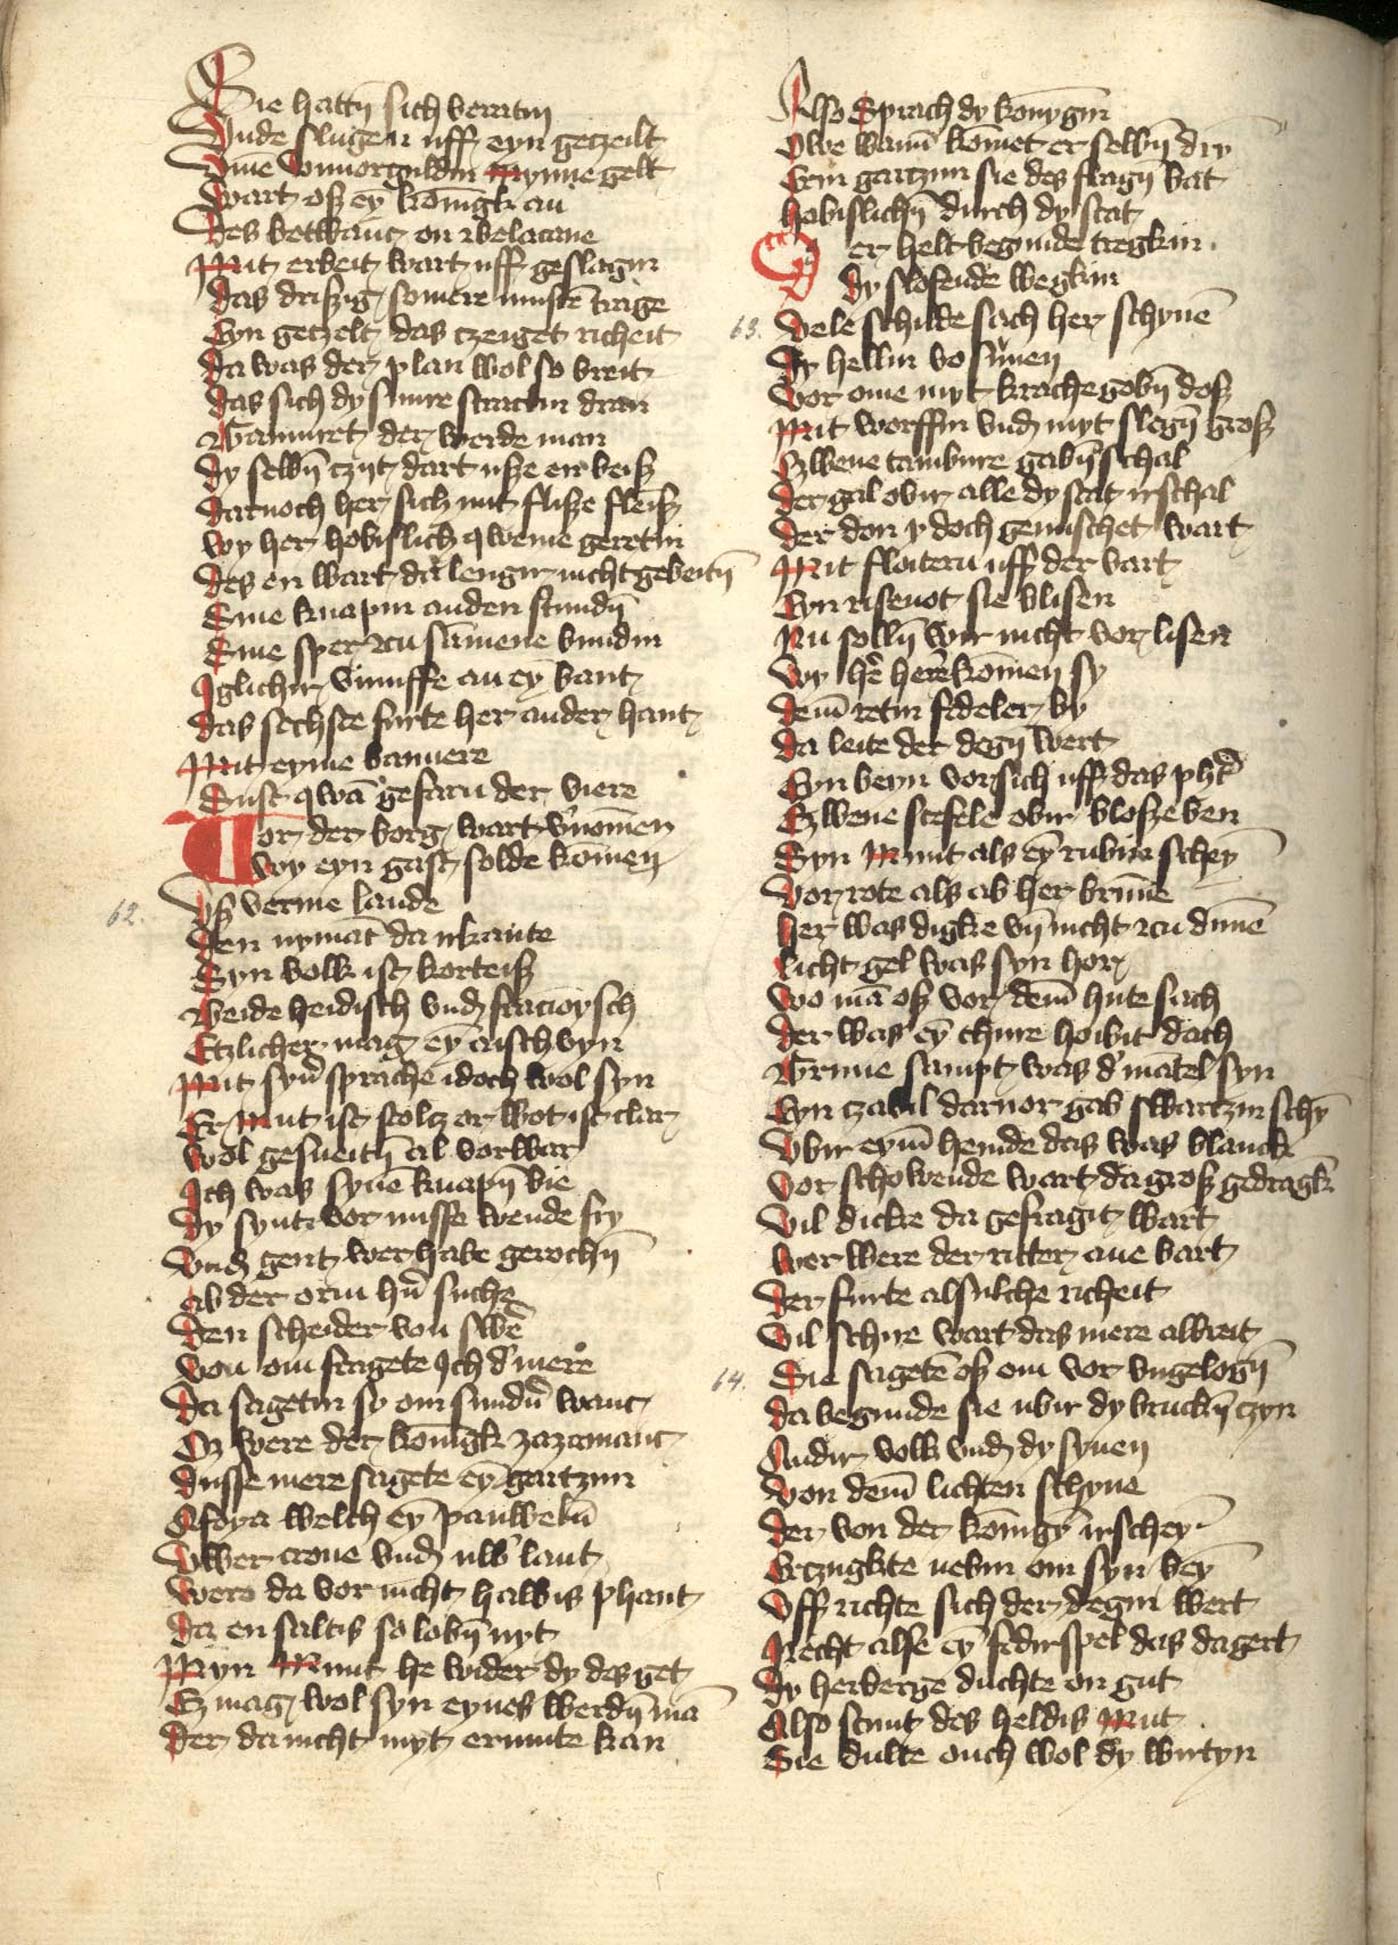 Sie hattñ sich beratin
Vnde slugen uff eyn getzeilt
Vme vnuorguldin mynne gelt
Wart oß eȳ kōnigk an
Des betwanc on belacane
Mit erbeit wart uff geslagin
das drißig somere mustē trage
Eyn getzelt das tzeiget richeit
da was der plan wol so breit
das sich dy snure stractin dran
Gamuret der werde man
dy selbñ czyt dart uße en beiß
darnoch her sich mit fliße fleiß
wy her hobislich qweme geretin
des en wart da lengir nicht gebeitñ
Sine knapin an den stundñ
Sine sper zcu sāmene bundin
Iglichir vinuffe an eȳ bant
das sechste furte her an der hant
Mit eyme banuere
Sust qwā gefarn der viere
Vor der borg wart v'nomen
wy eyn gast solde komen
62.
Vß verme lande
den nymāt da irkante
Syn volk ist korteiß
Beide heidisch vnd frazcoysch
Etzlicher mag eȳ antschevyn
Mit syn' sprache idoch wol syn
Er mut ist stoltz er wot ist clar
wol gesneitñ al vorwar
Ich was synē knapñ bie
dy synt vor misse wende fry
Vnd gent wer habe gerochñ
ab der orin hn̄ suche
den scheider von swē
von om fragete ich d' mere
da sagetin sy om sundir wanc
Oz were der konigk zazamanc
dusse mere sagete eȳ gartzun
Afoya welch eȳ pauwelun
Vwer crone vnd uw' lant
were da vor nicht halbis phant
da en saltis so lobñ nyt
Myn munt he wider dy des get
Ez mag wol syn eynes werdñ mā
der da nicht myt ermute kan
Also sprach dy konygin
Owe wann komet er selbñ dry
Ern gartzun sie des fragñ bat
hobislichñ durch dy stat
Der helt begunde tregkin
dy slofende wegkin
63.
Vele schilde sach her schynē
dy hellin bosunen
Vor ome myt krache gobñ doß
Mit worffin vnd myt slegñ groß
Czwene tambure gabñ schal
der gal obir alle dy stat irschal
der don y doch gemischet wart
Mit floitern uff der vart
Eyn risenot sie blisen
Nu sollñ wir nicht vor lisen
wy he' here komen sy
dem retin fedeler by
da leite der degñ wert
Eyn beyn vor sich uff das pherd
Czwene stefele obir bloße ben
Syn munt als eȳ rubin schey
Vor rote als ab her brūne
her was digke vñ nicht zcu dunē
licht gel was syn hor
wo mā oß vor dem hute sach
der was eȳ thure hoibit dach
Grune sampt was d' mātel syn
Eyn czabil darvor gab swartzin schȳ
Vbir eym hemde das was blanck
Vor schowende wart da groß gedragk
Vil dicke da gefragit wart
wer were der ritter ane bart
der furte alsulche richeit
Vil schire wart das mere albreit
64.
Sie sagetē oß om vor vngelogñ
da begunde sie ubir dy bruckñ czyn
Andir volk vnd dy synen
Von dem lichten schyne
der von der konigȳ irschey
Vrczugkte nebin om syn beȳ
Vff richte sich der degin wert
Recht alse eȳ fedirspel das da gert
dy herberge duchte on gut
Also stunt des heldis mut
Sie dulte ouch wol dy wirtyn